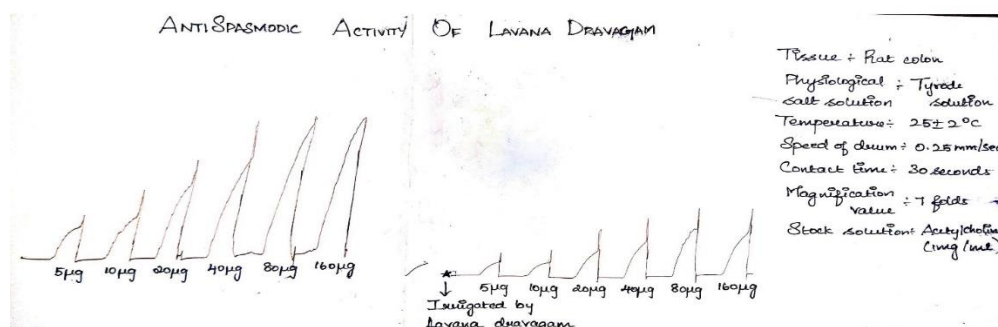 ANTISPASMODIC ACTIVITY OF LAVANA DRAVAGAM
5µg 10µg 20µg 40µg 80µg 160µg
★
5µg 10µg 20µg 40µg 80µg 160µg
Irrigated by
Lavana dravagam
Tissue ÷ Rat colon
Physiological ÷ Tyrode
salt solution solution
Temperature ÷ 25±2°C
Speed of drum ÷ 0.25mm/sec
Contact time ÷ 30 seconds
Magnification ÷ 7 folds
value
Stock solution ÷ Acetylcholin
(1mg/ml)